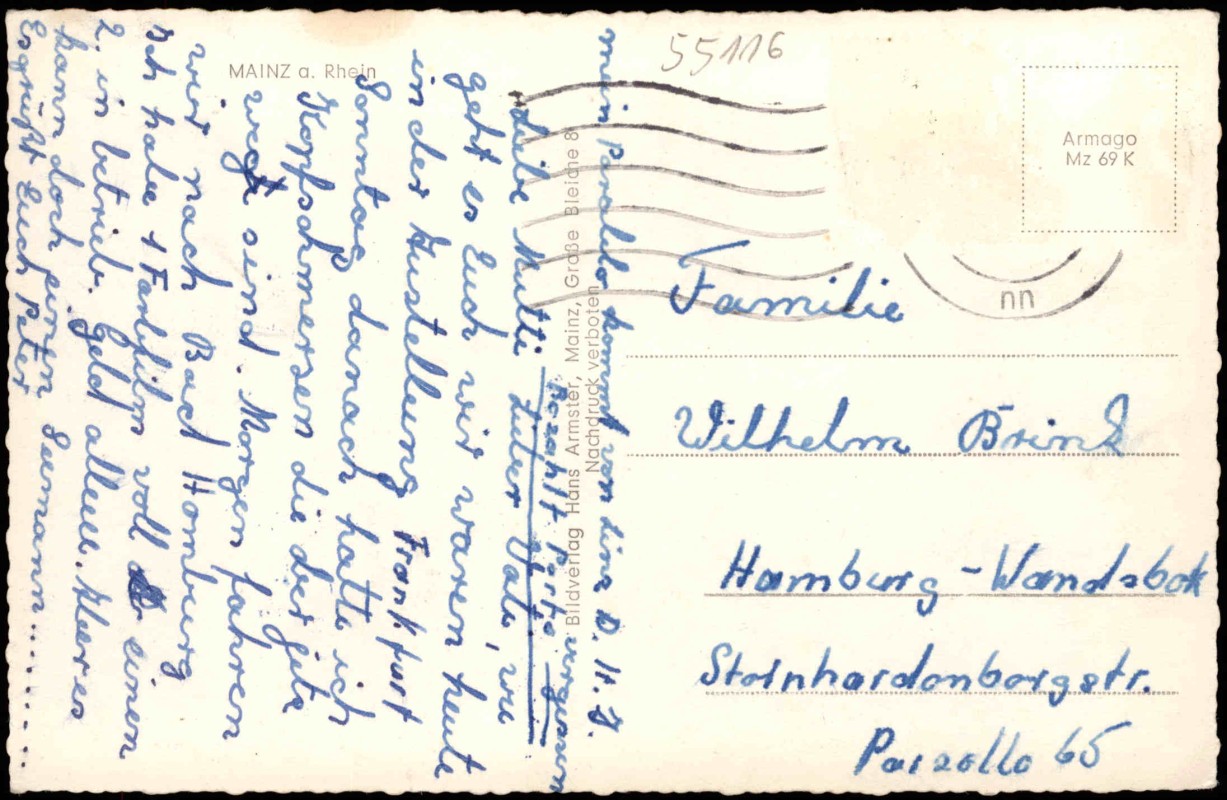 55116
MAINZ a. Rhein
Armago
Mz 69 K
Bildverlag Hans Armster, Mainz, Große Bleiche 8
Nachdruck verboten
nn
Familie
Wilhelm Brink
Hamburg-Wandsbek
Steinhardenbergstr.
Parzelle 65
Liebe Mutti, Guter Vati, wie
geht es Euch wir waren heute
in der Austellung Frankfurt
Sonntag danach hatte ich
Kopfschmersen die aber jetz
weg sind. Morgen fahren
wir nach Bad Homburg
Ich habe 1 Farbfilm voll einen
2. in betrieb. Geld alleee. kleeres
kann doch einen Seemann.......
Es grüßt Euch Peter
Bezahlt Porto vergessen
mein kommt von